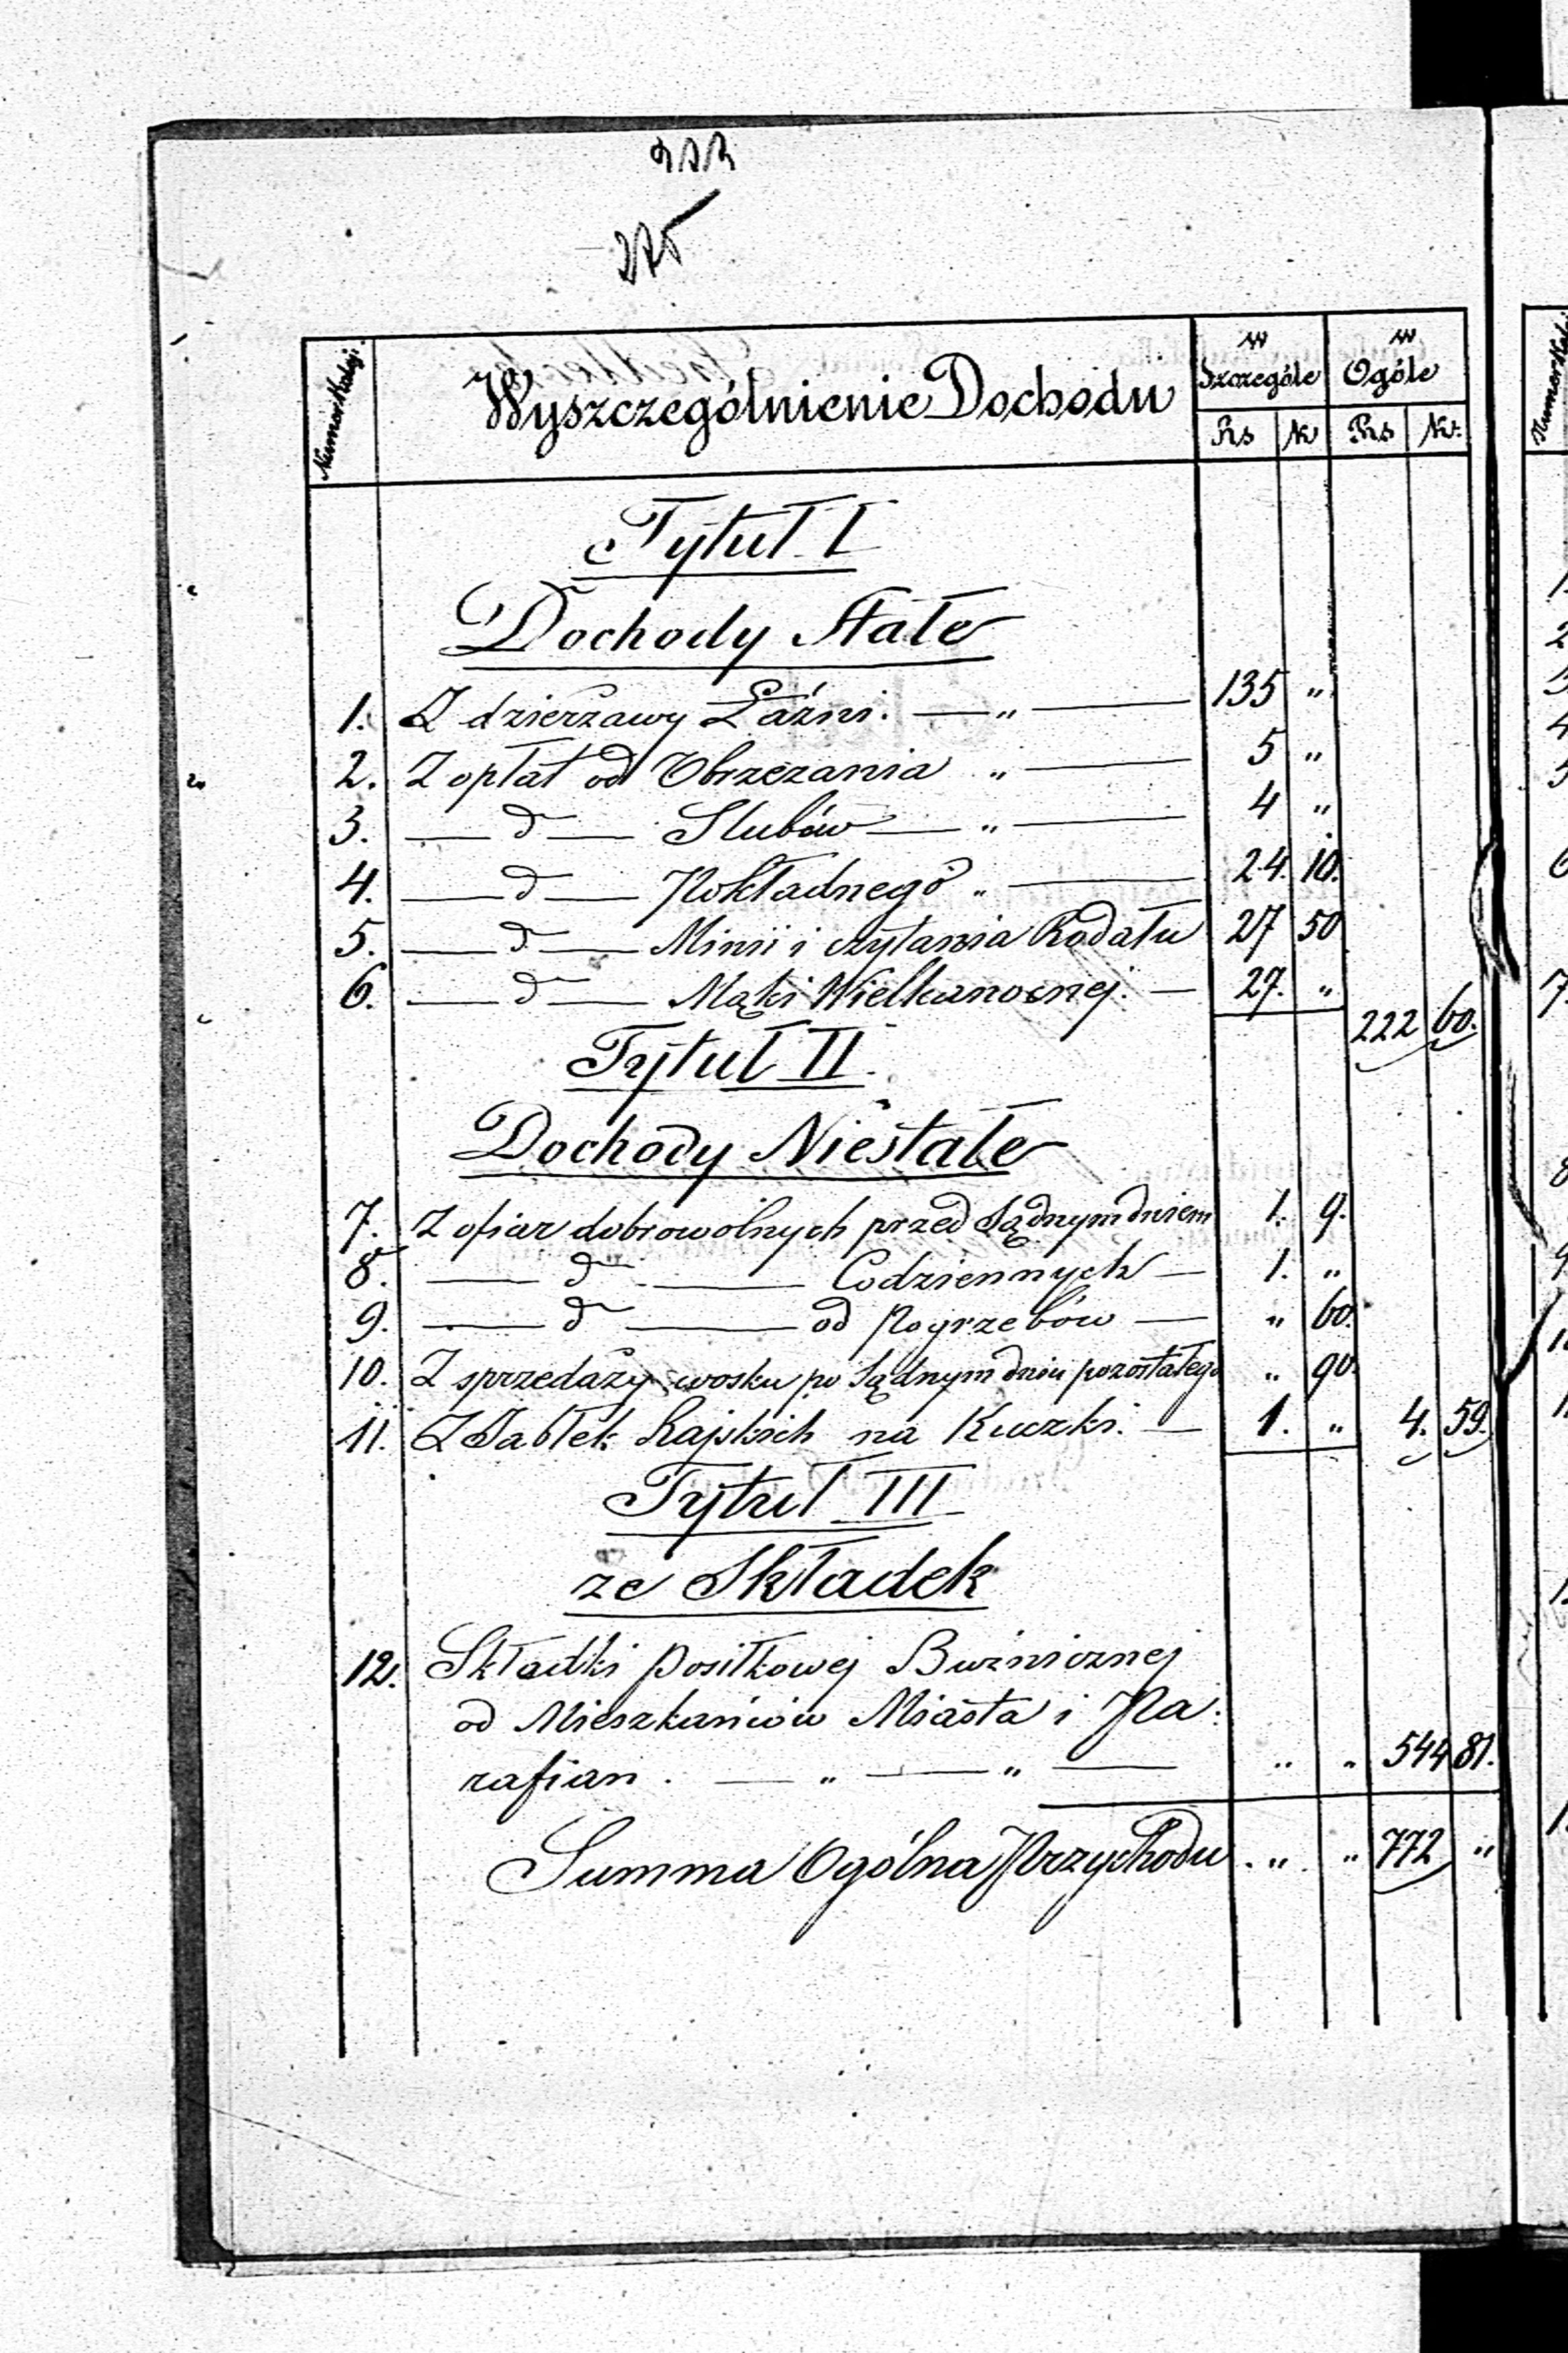 275
Numer Kolej.
Wyszczególnienie Dochodu
w Szczególe
w Ogóle
Rs K Rs K.
Tytuł I
Dochody Stałe
1. Z dzierzawy Łaźni. — „ — 135 „
2. Z opłat od Obrzezania „ — 5 „
3. — d — Slubów — „ — 4 „
4. — d — Pokładnego „ — 24. 10.
5. — d — Minii i czytania Rodału 27 50
6. — d — Mąki Wielkanocnej. — 27. „
222 60.
Tytuł II.
Dochody Niestałe
7. Z ofiar dobrowolnych przed Sądnym dniem 1. 9.
8. — d — Codziennych — 1. „
9. — d — od Pogrzebów — „ 60.
10. Z sprzedaży wosku po Sądnym dniu pozostałego „ 90.
11. Z Jabłek Rajskich na Kuczki. — 1. „ 4. 59.
Tytuł III
ze Składek
12. Składki posiłkowej Buźnicznej
od Mieszkańców Miasta i Pa:
rafian. — „ — „ — „ „ 544 81.
Summa Ogólna Przychodu . „ „ 772 „